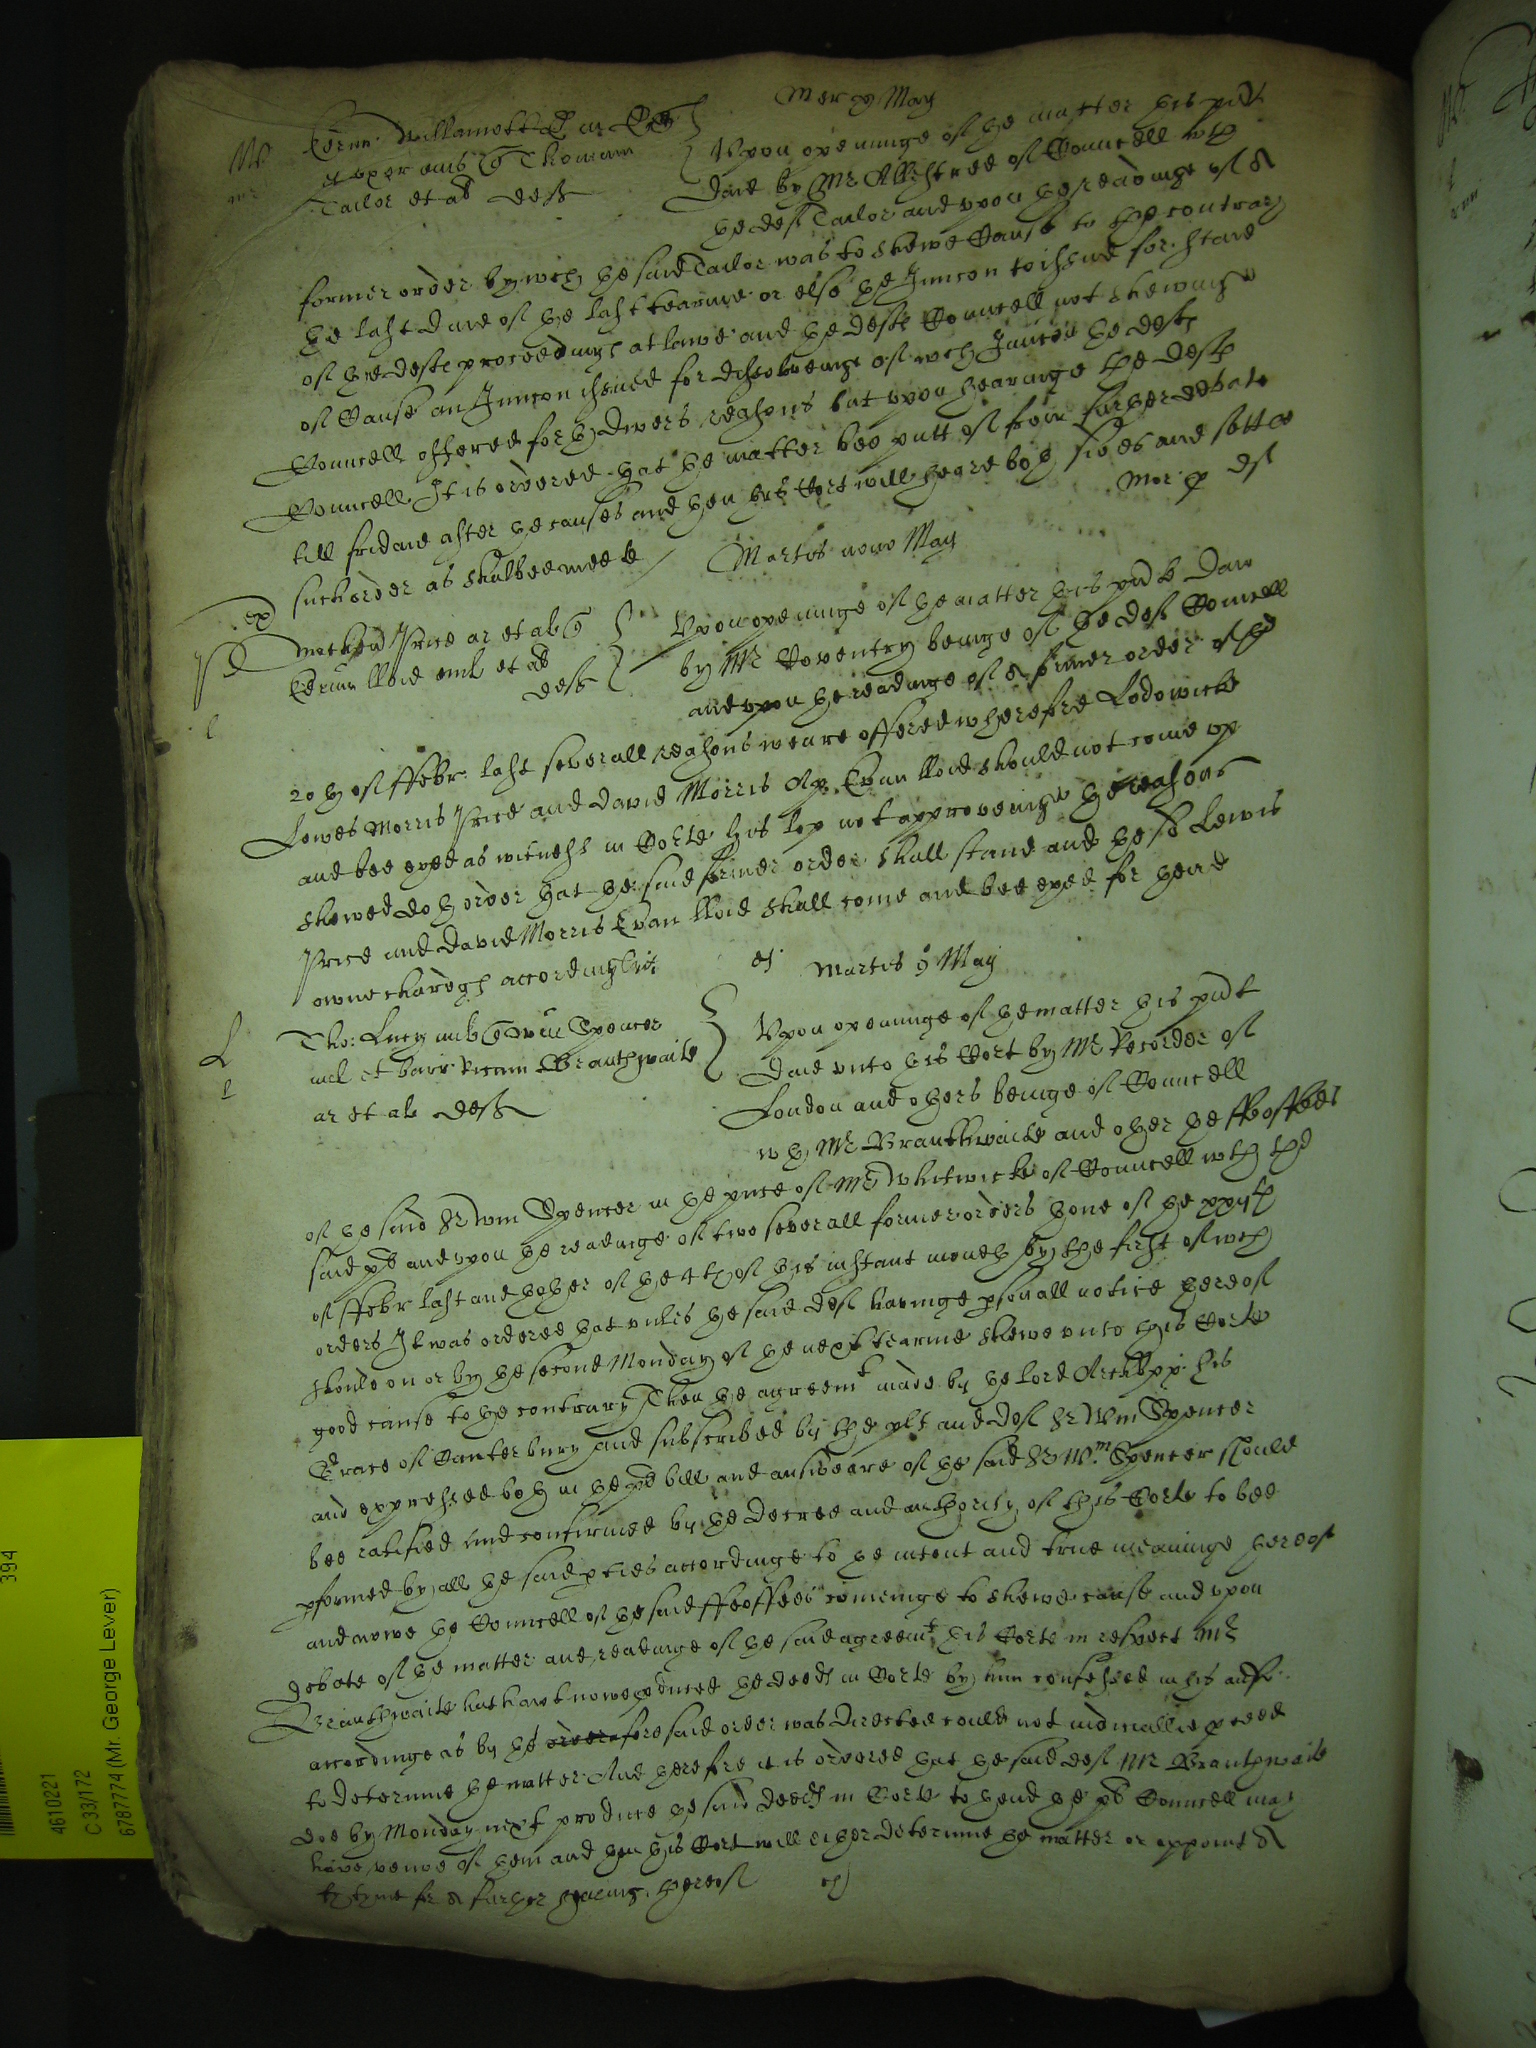 Mer x May
Edrus Willamott ar
et uxor eius Thomam
Tailor et al deft
Upon openinge of the matter this pnt
Daie by Mr Allestree of Councell wth
the deft Tailor and upon the readinge of a
former order by wch the said Tailor was to shewe Cause to the contrary
the last Daie of the last tearme or else the Iniuncon to issue for staie
of the defts proceedings at lawe and the defts Councell not shewinge
of Cause an Iniuncon issued for dissolveinge of wch Iniuncon the defts
Councell offered forth divers reasons but upon hearinge the defts
Councell It is ordered that the matter bee putt of for further debate
till fridaie after the causes and then this Cort will heare both sides and settle
such order as shalbee meete
Martis nono May
Price ar et al
Edrum lloid et al
deft
Upon openinge of the matter this pnt Daie
by Mr Coventry beinge of the def Councell
and upon the readinge of a former order of the
20th of ffebr last severall reasons weare offered wherefore Lodowicke
Lewes Morris Price and David Morris Ap Evan lloid should not come up
and bee exed as witness in Corte his lop not approveinge the reasons
shewed doth order that the said former order shall stand and the sd Lewis
Price and David Morris Evan lloid shall come and bee exed for theire
owne chardgs accordingly
Martis 9 May
Tho: Lucy Wm Spencer
mil et barr Ricum Branthwaite
ar et al deft
Upon openinge of the matter this pnt
Daie unto this Cort by Mr Recorder of
London and others beinge of Councell
wth Mr Branthwaite and other the ffeoffees
of the said Sr Wm Spencer in the pnce of Mr Whitwicke of Councell wth the
said plt and upon the readinge of two severall former orders thone of the xxijth
of ffebr last and thother of the 4th of this instant moneth by the first of wch
orders It was ordered that unles the said def havinge psonall notice thereof
should on or by the second Monday of the next tearme shewe unto this Corte
good cause to the contrary Then the agreemt made by the lord Archbpp his
Grace of Canterbury and subscribed by the plt and def Sr Wm Spencer
and expressed both in the plts bill and answeare of the said Sr Wm Spencer should
bee ratified and confirmed by the Decree and authority of this Corte to bee
pformed by all the said pties accordinge to the intent and true meaninge thereof
and nowe the Councell of the said ffeoffees cominge to shewe cause and upon
debate of the matter and readinge of the said agreemt this Corte in respect Mr
Branthwaite hath not nowe pduced the deeds in Corte by him confessed in his answ:
accordinge as by the order aforesaid order was directed could not iudiciallie pceed
to determine the matter And therefore it is ordered that the said def Mr Branthwaite
doe by Monday next produce the said deeds in Corte to thend the plts Councell may
have veiwe of them and then this Cort will either determine the matter or appoint a
tyme for a further hearing thereof
394
4610221
C 33/172
6787774 (Mr. George Lever)